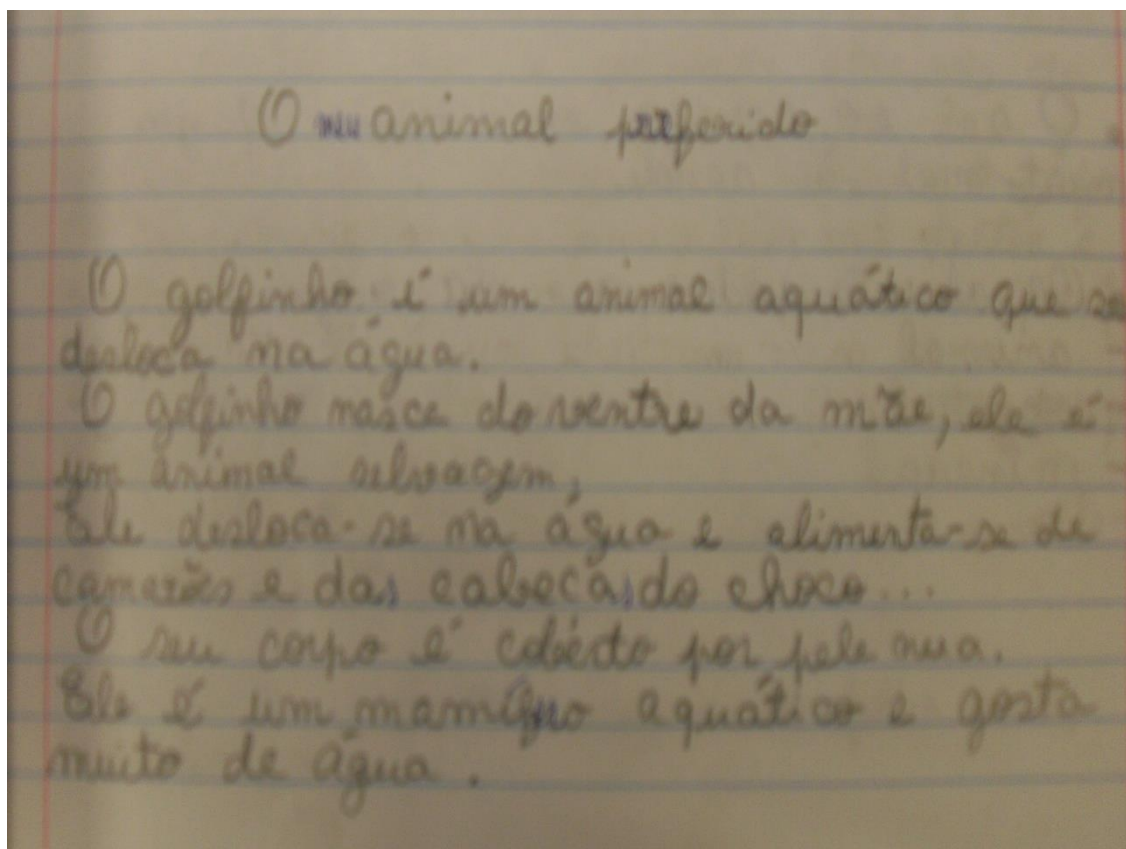 O meu animal preferido
O golfinho é um animal aquático que se
desloca na água.
O golfinho nasce do ventre da mãe, ele é
um animal selvagem,
Ele desloca-se na água e alimenta-se de
camarões e das cabeças do choco...
O seu corpo é coberto por pele nua.
Ele é um mamífero aquático e gosta
muito de água.